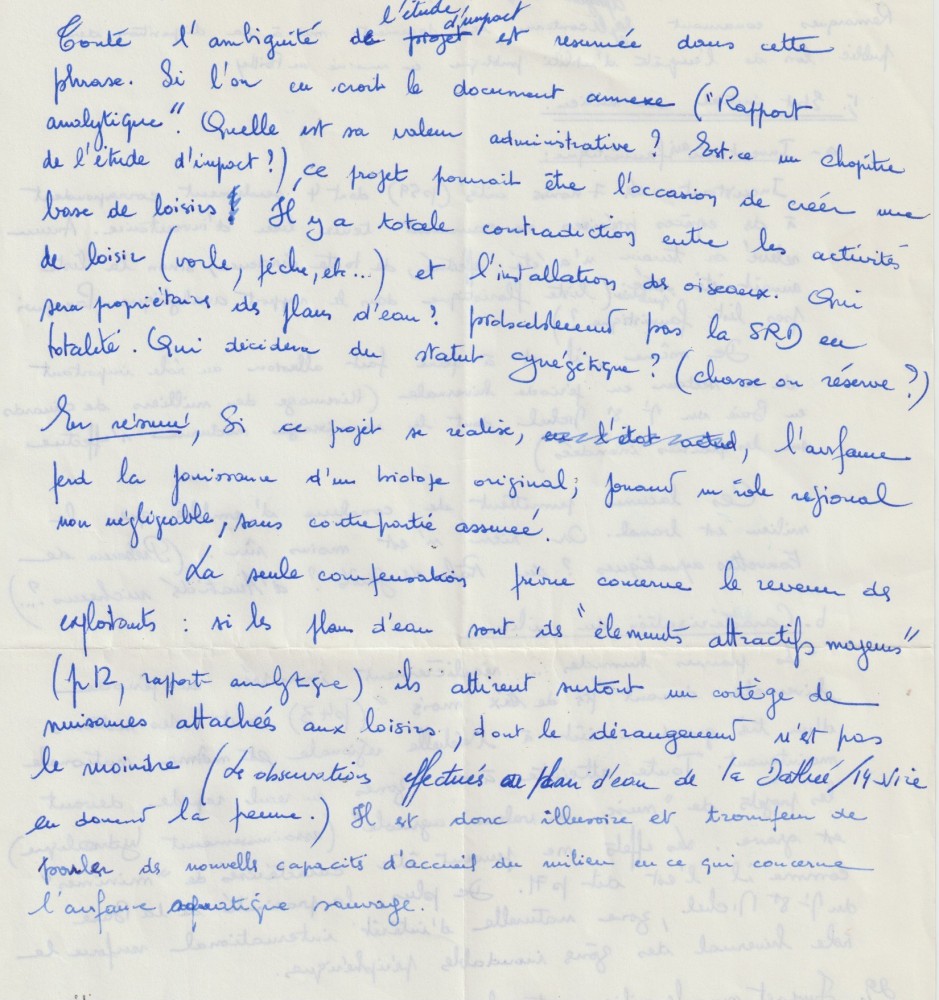 Toute l'ambiguité de l'étude d'impact est resumée dans cette
phrase. Si l'on en croit le document annexe ("Rapport
analytique". Quelle est sa valeur administrative ? Est-ce un chapitre
de l'étude d'impact ?) ce projet pourrait être l'occasion de créer une
base de loisirs ! Il y a totale contradiction entre les activités
de loisir (voile, pêche, etc...) et l'installation des oiseaux. Qui
sera propriétaire des plans d'eau ? probablement pas la SRD en
totalité. Qui décidera du statut cynégétique ? (chasse ou réserve ?)
En résumé, Si ce projet se réalise, en l'état actuel, l'avifaune
perd la jouissance d'un biotope original, jouant un rôle régional
non négligeable, sans contrepartie assurée.
La seule compensation prévue concerne le revenu des
exploitants : si les plans d'eau sont des "élements attractifs majeurs"
(p 12, rapport analytique) ils attirent surtout un cortège de
nuisances attachées aux loisirs, dont le dérangement n'est pas
le moindre (Les observations effectués au plan d'eau de la Dathée/14-Vire
en donnent la preuve.) Il est donc illusoire et trompeur de
parler des nouvelles capacités d'accueil du milieu en ce qui concerne
l'avifaune aquatique sauvage.